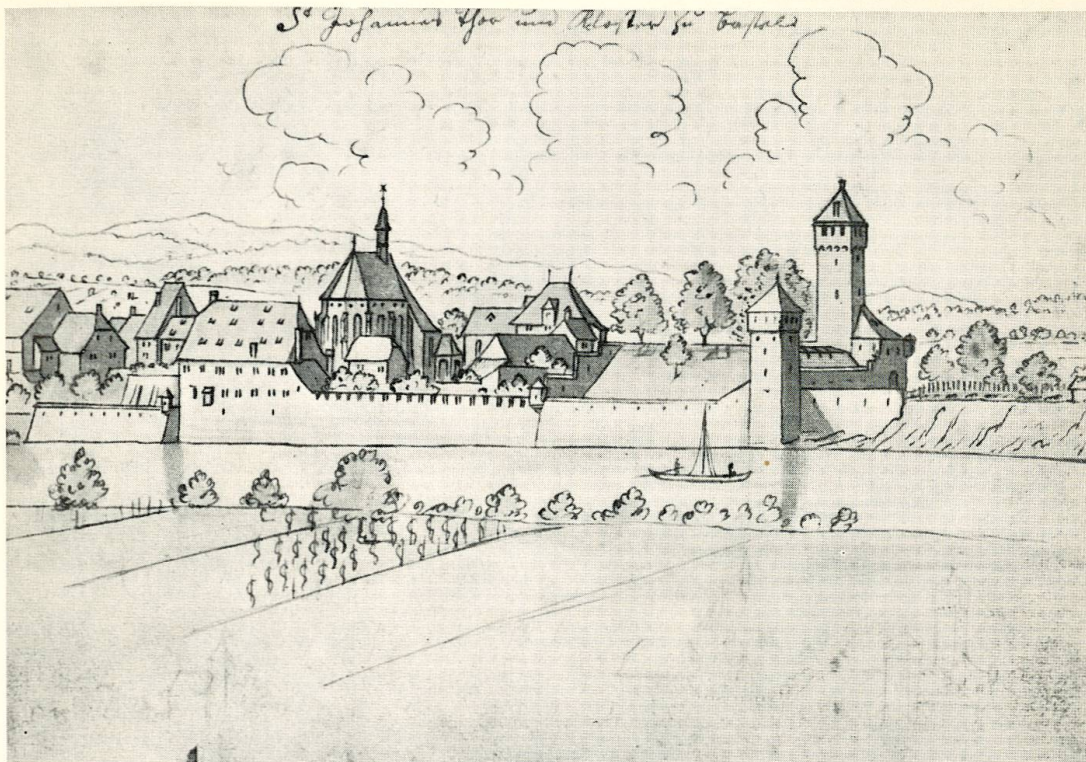 St Johannes Thor und Kloster zu Basel